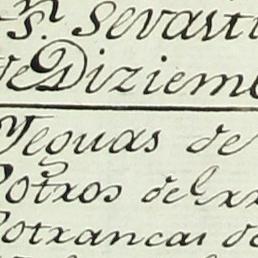 n Sevasti
de Diziem
Yeguas de
Potros del
Potrancas de